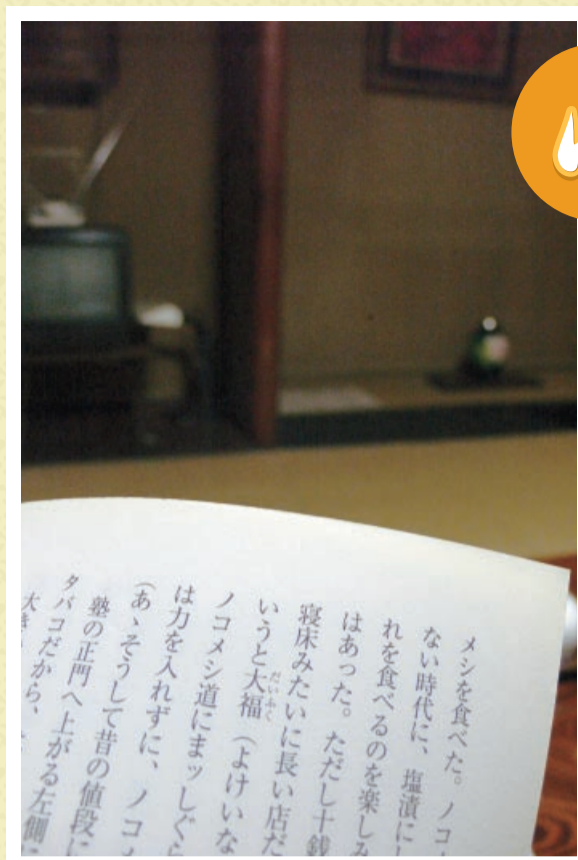 メシを食べた。ノコ
ない時代に、塩漬にし
れを食べるのを楽しみ
はあった。ただし十銭
寝床みたいに長い店だ
いうと大福（よけいな
だいふく
ノコメシ道にまッしぐら
は力を入れずに、ノコメ
（あゝそうして昔の値段に
塾の正門へ上がる左側に
タバコだから、
大き